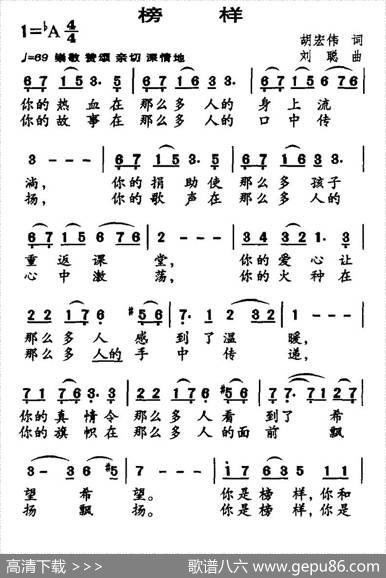 榜 样
1=♭A 4/4
胡宏伟 词
♩=69 崇敬 赞颂 亲切 深情地
刘 聪 曲
6 7 1 5 3· 5 6 7 1 6 3 3 6 7 1 5 6 7 6
你的热血在那么多人的身上流
你的故事在那么多人的口中传
3 - - - 6 7 1 5 3· 5 6 7 1 6 3 3
淌， 你的捐助使那么多孩子
扬， 你的歌声在那么多人的
6 7 1 5 6 7 6 2 - - - 3 4 3 2 1· 3
重返课堂， 你的爱心让
心中激荡， 你的火种在
2 2 1 7 6 #5 6 7· 1 2 3 2 1 - - -
那么多人感到了温暖，
那么多人的手中传递，
7 1 7 6 3· 3 2 2 1 7 6 #5 6 7· 7 7 1 2 7
你的真情令那么多人看到了希
你的旗帜在那么多人的面前飘
3 - 3 6 #5 7 - - - 1 7 6 3 5 1 1
望希望。 你是榜样，你和
扬飘扬。 你是榜样，你是
高清下载 >>>
歌谱八六 www.gepu86.com